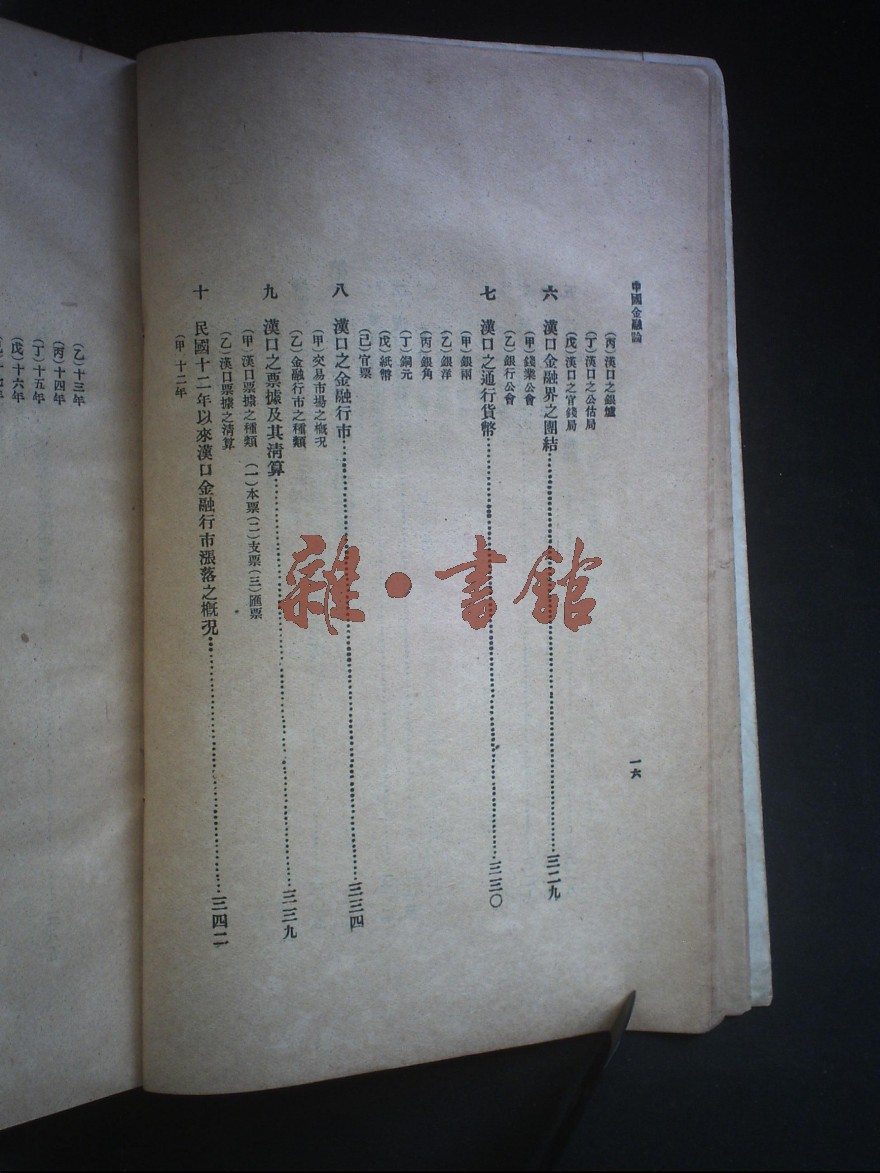 中國金融論
一六
(丙)漢口之銀爐
(丁)漢口之公估局
(戊)漢口之官錢局
六　漢口金融界之團結…………三二九
(甲)錢業公會
(乙)銀行公會
七　漢口之通行貨幣…………三三〇
(甲)銀兩
(乙)銀洋
(丙)銀角
(丁)銅元
(戊)紙幣
(己)官票
八　漢口之金融行市…………三三四
(甲)交易市場之概況
(乙)金融行市之種類
九　漢口之票據及其清算…………三三九
(甲)漢口票據之種類　(一)本票(二)支票(三)匯票
(乙)漢口票據之清算
十　民國十二年以來漢口金融行市漲落之概況…………三四二
(甲)十二年
(乙)十三年
(丙)十四年
(丁)十五年
(戊)十六年
雜·書館